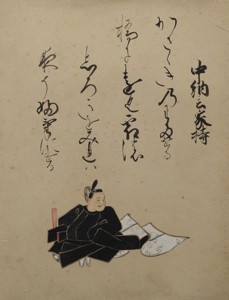 中納言家持
かさゝきのわたせる
橋にをく霜の
しろきをみれは
夜そふけにける